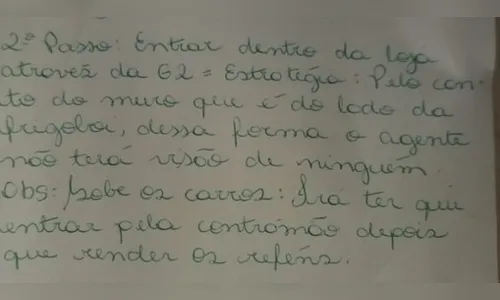 2º Passo: Entrar dentro da loja
através da G2 = Estrotégia: Pelo can-
to do muro que é do lado da
fregoloi, dessa forma o agente
não terá visão de ninguém.
Obs: Sobe os carros: Irá ter qui
entrar pela contromão depois
que render os reféns.